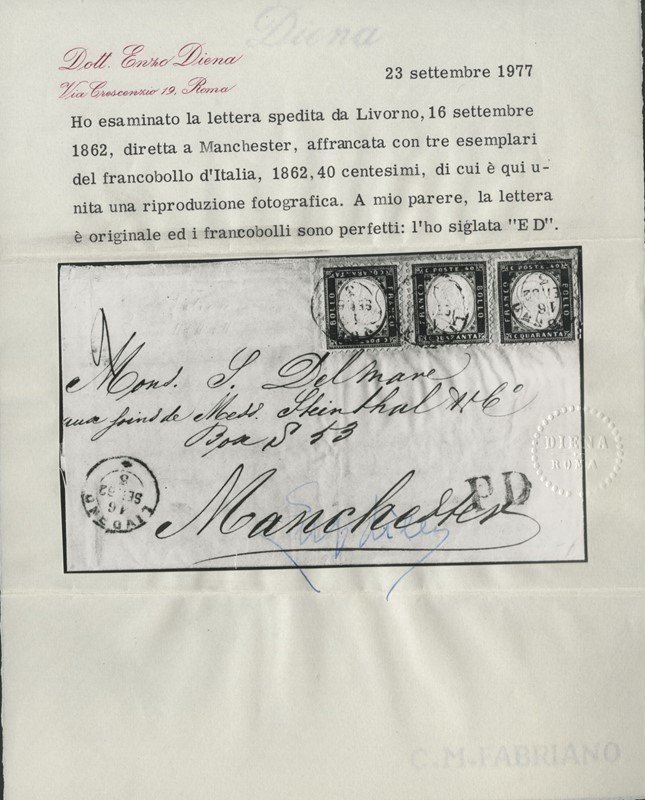 Diena
Dott. Enzo Diena
Via Crescenzio 19, Roma
23 settembre 1977
Ho esaminato la lettera spedita da Livorno, 16 settembre
1862, diretta a Manchester, affrancata con tre esemplari
del francobollo d'Italia, 1862, 40 centesimi, di cui è qui u-
nita una riproduzione fotografica. A mio parere, la lettera
è originale ed i francobolli sono perfetti: l'ho siglata "E D".
FRANCO BOLLO
C. POSTE 40 FRANCO BOLLO C. QUARANTA
C. POSTE 40 FRANCO BOLLO C. QUARANTA
Mons. S. Delmare
aux soins de Mess. Steinthal & Co
Box S 53
Manchester
PD
LIVORNO
16
SET 62
DIENA
ROMA
C.M.FABRIANO